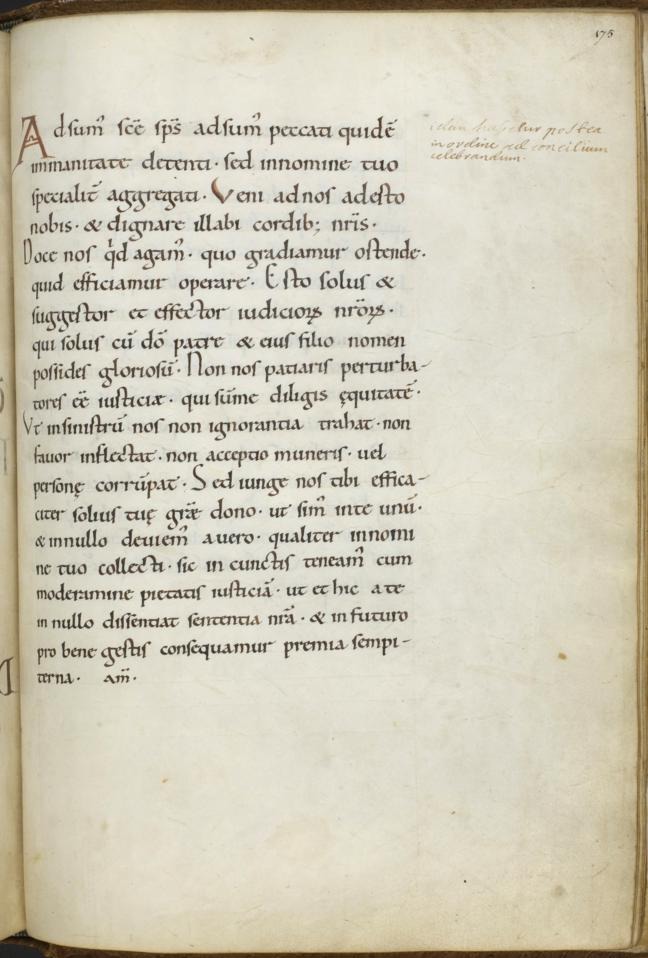 175
Adsum̄ sc̄e sp̄s adsum̄ peccati quidē
immanitate detenti · sed innomine tuo
specialit̄ aggregati. Veni adnos adesto
nobis · & dignare illabi cordib; nr̄is ·
Doce nos q̇d agam̄ · quo gradiamur ostende ·
quid efficiamur operare · Esto solus &
suggestor et effector iudicioꝝ nr̄oꝝ ·
qui solus cū dō patre & eius filio nomen
possides gloriosū · Non nos patiaris perturba-
tores eē iusticiæ · qui sūme diligis ęquitatē ·
Vt insinistrū nos non ignorantia trahat · non
fauor inflectat · non acceptio muneris · uel
personę corrūpat · Sed iunge nos tibi effica-
citer solius tuę gr̄æ dono · ut sim̄ inte unū ·
& innullo deuiem̄ auero · qualiter innomi
ne tuo collecti · sic in cunctis teneam̄ cum
moderamine pietatis iusticiā · ut et hic a te
in nullo dissentiat sententia nr̄a · & infuturo
pro bene gestis consequamur premia sempi-
terna · am̄ ·
habetur postea
in ordine ad concilium
celebrandum.